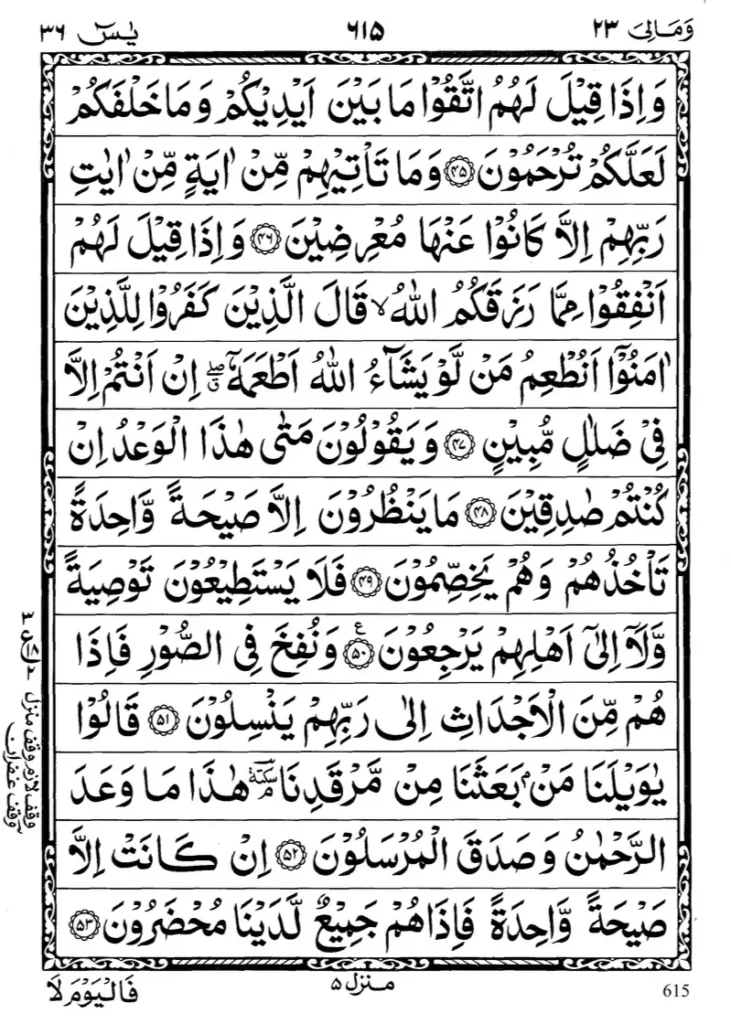 وَمَالِیَ ۲۳ ٦١٥ یٰسٓ ۳۶
وَاِذَا قِیْلَ لَهُمُ اتَّقُوْا مَا بَیْنَ اَیْدِیْكُمْ وَمَا خَلْفَكُمْ
لَعَلَّكُمْ تُرْحَمُوْنَ ﴿۴۵﴾ وَمَا تَاْتِیْهِمْ مِّنْ اٰیَةٍ مِّنْ اٰیٰتِ
رَبِّهِمْ اِلَّا كَانُوْا عَنْهَا مُعْرِضِیْنَ ﴿۴۶﴾ وَاِذَا قِیْلَ لَهُمْ
اَنْفِقُوْا مِمَّا رَزَقَكُمُ اللّٰهُ ۙ قَالَ الَّذِیْنَ كَفَرُوْا لِلَّذِیْنَ
اٰمَنُوْۤا اَنُطْعِمُ مَنْ لَّوْ یَشَآءُ اللّٰهُ اَطْعَمَهٗۤ ۖۗ اِنْ اَنْتُمْ اِلَّا
فِیْ ضَلٰلٍ مُّبِیْنٍ ﴿۴۷﴾ وَیَقُوْلُوْنَ مَتٰی هٰذَا الْوَعْدُ اِنْ
كُنْتُمْ صٰدِقِیْنَ ﴿۴۸﴾ مَا یَنْظُرُوْنَ اِلَّا صَیْحَةً وَّاحِدَةً
تَاْخُذُهُمْ وَهُمْ یَخِصِّمُوْنَ ﴿۴۹﴾ فَلَا یَسْتَطِیْعُوْنَ تَوْصِیَةً
وَّلَاۤ اِلٰۤی اَهْلِهِمْ یَرْجِعُوْنَ ﴿۵۰﴾ ع وَنُفِخَ فِی الصُّوْرِ فَاِذَا
هُمْ مِّنَ الْاَجْدَاثِ اِلٰی رَبِّهِمْ یَنْسِلُوْنَ ﴿۵۱﴾ قَالُوْا
یٰوَیْلَنَا مَنْۢ بَعَثَنَا مِنْ مَّرْقَدِنَا ۘ سكتة هٰذَا مَا وَعَدَ
الرَّحْمٰنُ وَصَدَقَ الْمُرْسَلُوْنَ ﴿۵۲﴾ اِنْ كَانَتْ اِلَّا
صَیْحَةً وَّاحِدَةً فَاِذَا هُمْ جَمِیْعٌ لَّدَیْنَا مُحْضَرُوْنَ ﴿۵۳﴾
وقف لازم وقف منزل
وقف غفران
فَالْیَوْمَ لَا منزل ۵ 615